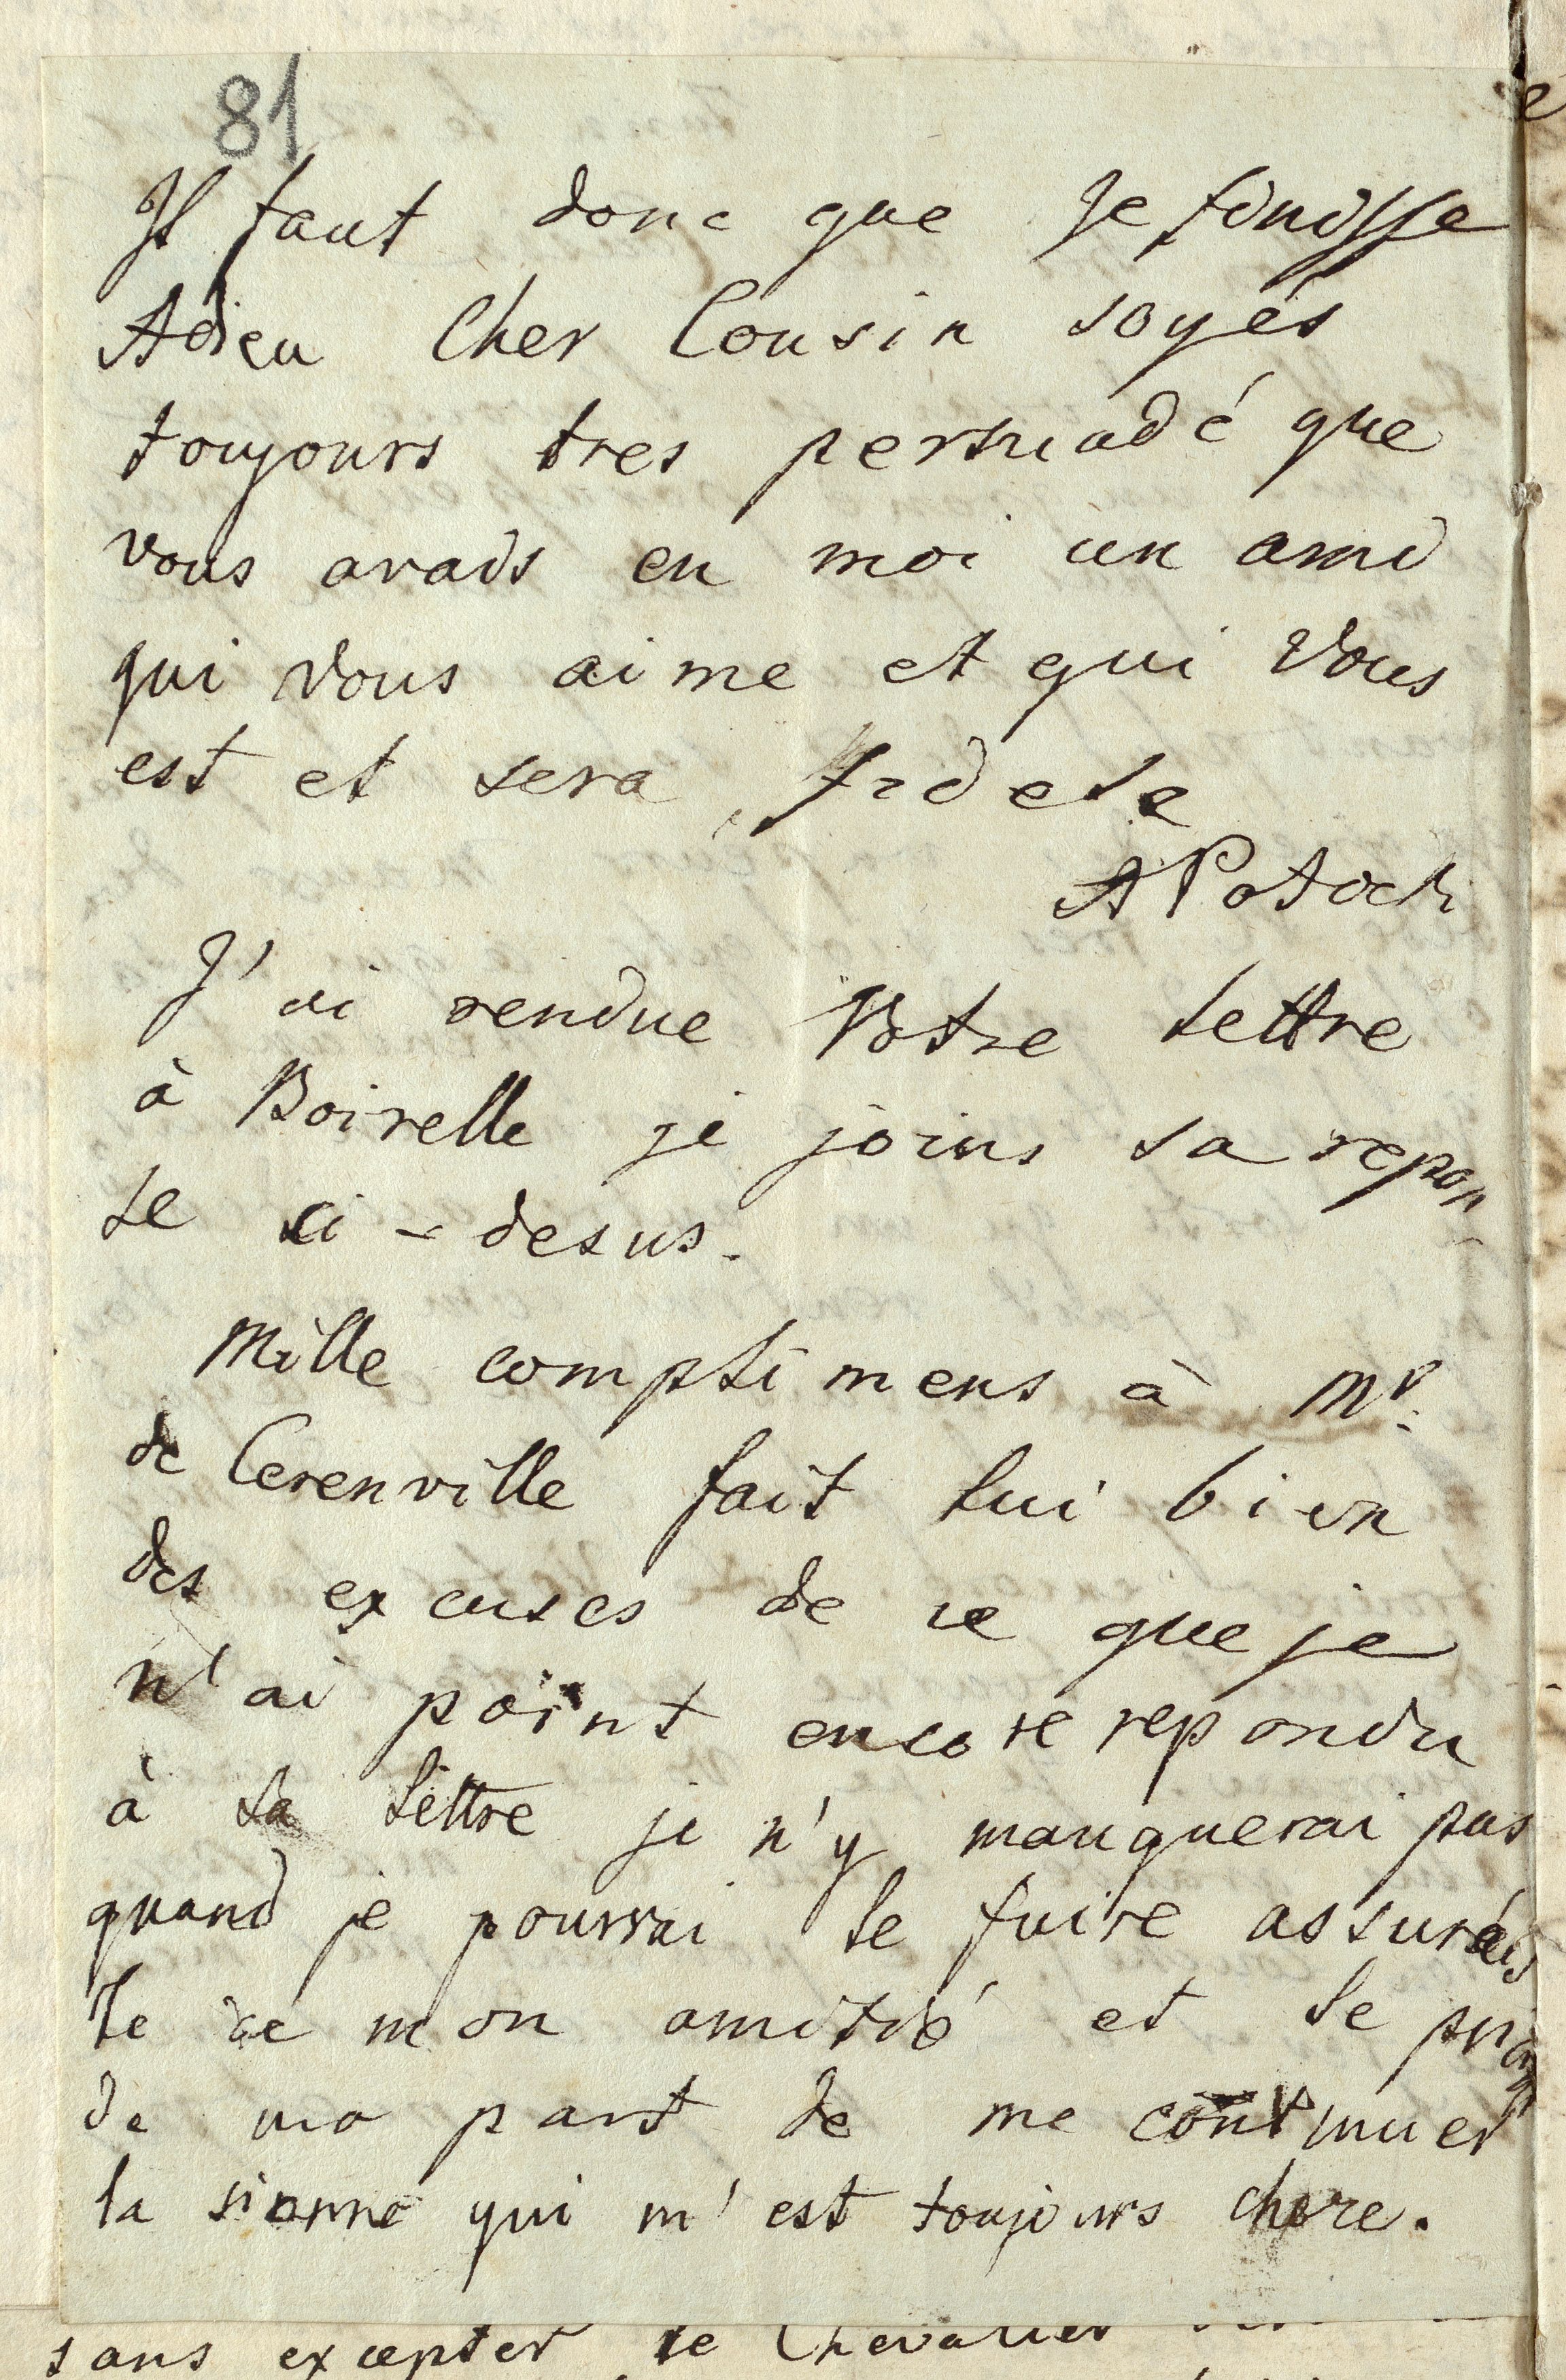 81
Il faut donc que je finisse
Adieu Cher Cousin soyés
toujours tres persuadé que
vous avais en moi un ami
qui vous aime et qui vous
est et sera fidele
A Potocki
J'ai rendue Votre lettre
à Boirelle je joins sa repon
se ci-desus.
Mille complimens à Mr.
de Cerenville fait lui bien
des excuses de ce que je
n'ai point encore repondu
à sa lettre je n'y manquerai pas
quand je pourrai le faire assurés
le de mon amitié et le
de ma part de me continuer
la sienne qui m'est toujours chere.
sans excepter le Chevalier